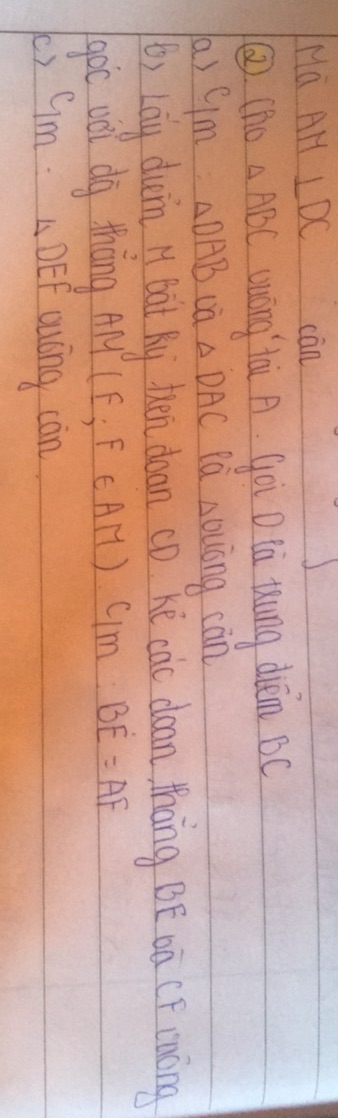 Mà AM ⊥ DC
cân
② Cho △ ABC vuông tại A. Gọi D là trung điểm BC
a) C/m: △DAB và △ DAC là △vuông cân
b) Lấy điểm M bất kỳ trên đoạn CD. Kẻ các đoạn thẳng BE và CF vuông
góc với đg thẳng AM (E; F ∈ AM). C/m: BE = AF
c) C/m: △DEF vuông cân